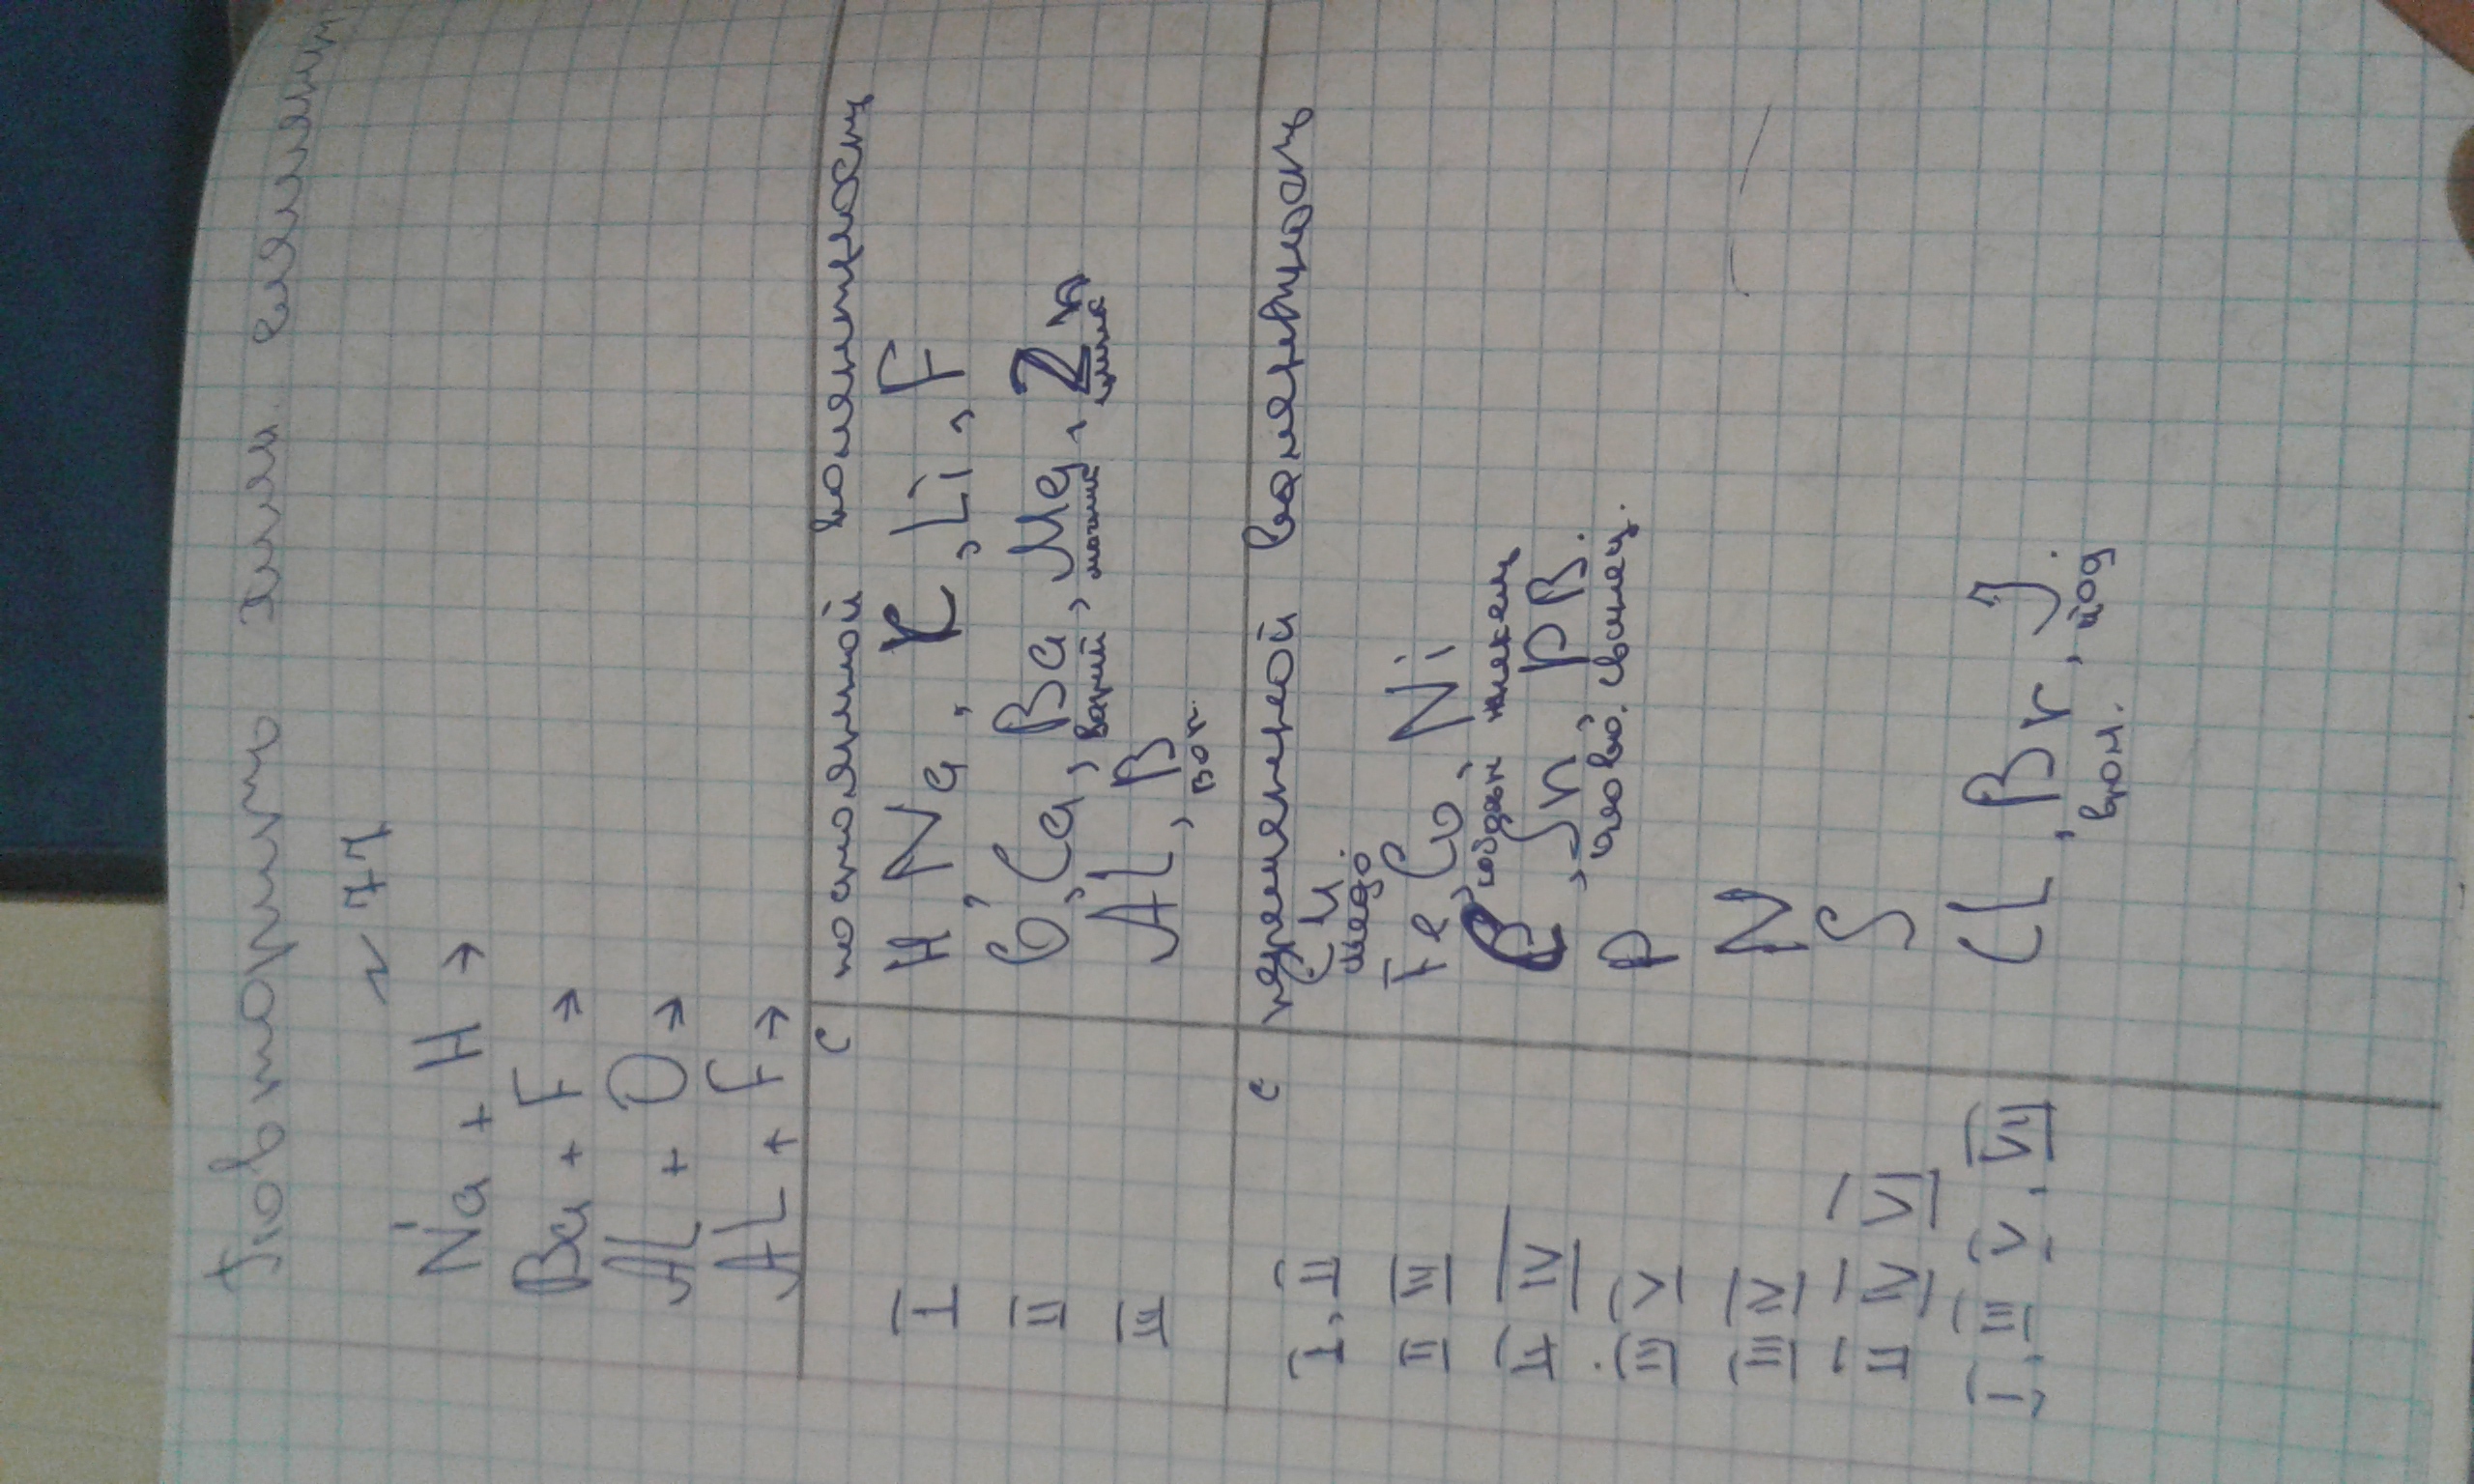 Повторить хим. элементы
~ 77
Na + H →
Ba + F →
AL + O →
AL + F →
с постоянной валентность
I H, Na, K, Li, F
II O, Ca, Ba, Mg, Zn
Барий, магний цинк
III AL, B
Бор.
с переменной валентность
I, II Cu
медь.
II III Fe, Co, Ni
кобальт никель
II IV C, Sn, PB.
олово. свинец.
III V P
III IV N
II IV VI S
I, III V, VII CL, Br, J.
бром. йод